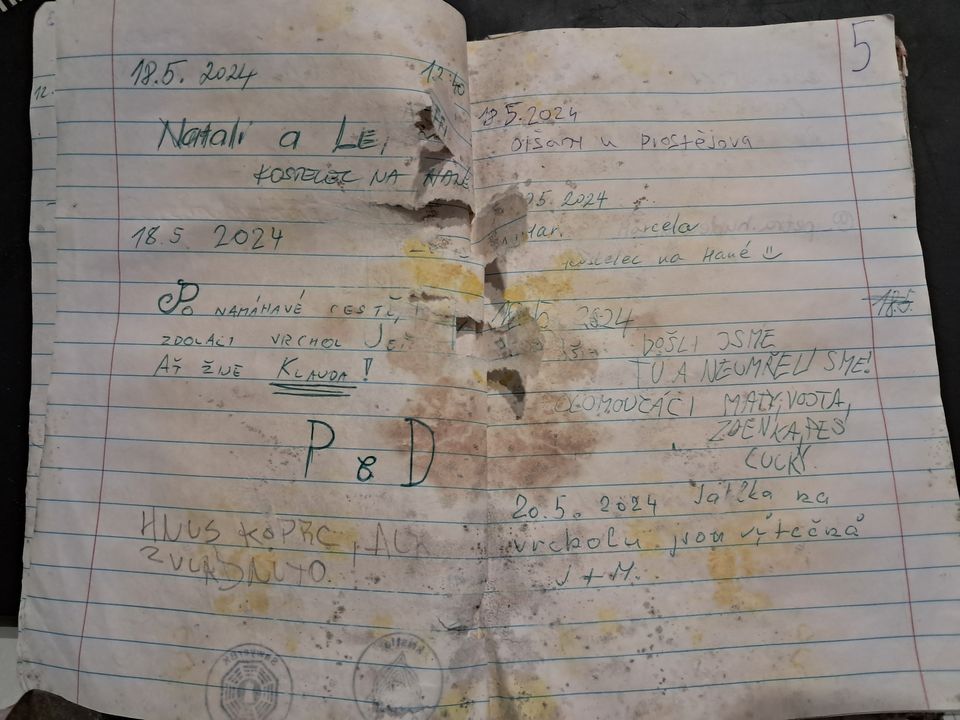 18.5. 2024 12:40
Natali a
KOSTELEC NA HANÉ
18.5 2024
PO NAMÁHAVÉ CESTĚ,
ZDOLÁCI VRCHOL
AŤ ŽIJE KLAUDA!
P & D
HNUS KOPRC,
5
18.5.2024
Olšany u Prostějova
05 2024
Marcela
Kostelec na Hané
18.5 2024
18.5.
DOŠLI JSME
TU A NEUMŘELI SME!
OLOMOUČÁCI MATY, VOJTA,
ZDEŇKA, PES
CUCKY.
20.5. 2024 Játžka na
vrcholu jsou výtečná
J + M.